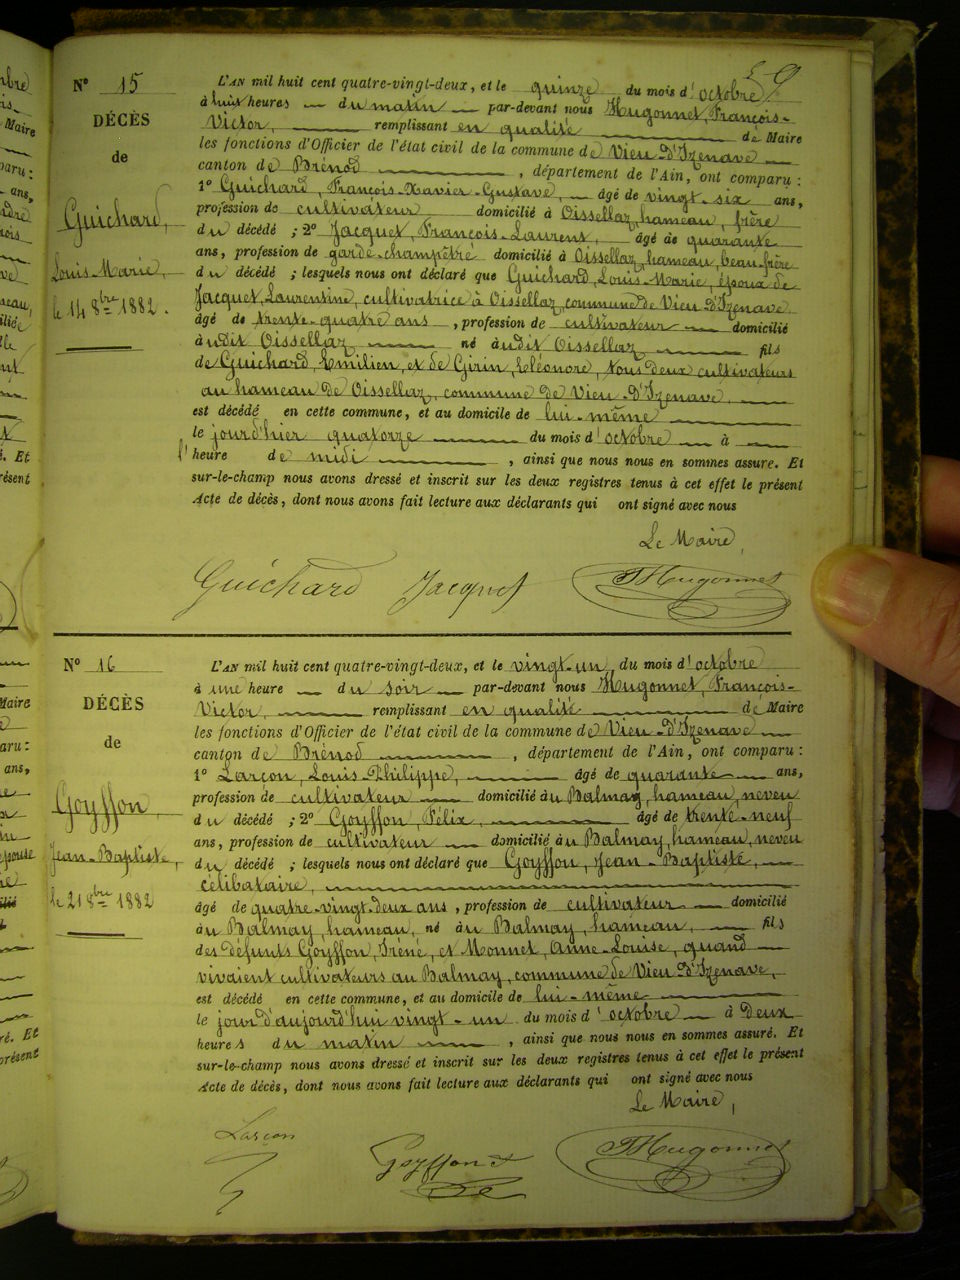 9
N° 15
DÉCÈS
de
Guichard,
Louis-Marie,
le 14 8bre 1882.
L'AN mil huit cent quatre-vingt-deux, et le quinze du mois d'octobre
à huit heures du matin par-devant nous Hugonnet, François-
Victor, remplissant en qualité de Maire
les fonctions d'Officier de l'état civil de la commune de Vieu-d'Izenave
canton de Brénod, département de l'Ain, ont comparu :
1° Guichard, François-Xavier-Gustave, âgé de vingt-six ans,
profession de cultivateur domicilié à Oissellaz, hameau, frère
du décédé ; 2° Jacquet, François-Laurent, âgé de quarante
ans, profession de garde-champêtre domicilié à Oissellaz, hameau, beau-frère
du décédé ; lesquels nous ont déclaré que Guichard, Louis-Marie, époux de
Jacquet, Laurentine, cultivatrice à Oissellaz, commune de Vieu-d'Izenave
âgé de trente-quatre ans, profession de cultivateur domicilié
à udit Oissellaz né à udit Oissellaz fils
de Guichard, Emilien, et de Girin, Eléonore, tous deux cultivateurs
au hameau de Oissellaz, commune de Vieu-d'Izenave,
est décédé en cette commune, et au domicile de lui-même
le jour d'hier quatorze du mois d'octobre à
l'heure de midi, ainsi que nous nous en sommes assuré. Et
sur-le-champ nous avons dressé et inscrit sur les deux registres tenus à cet effet le présent
Acte de décès, dont nous avons fait lecture aux déclarants qui ont signé avec nous
Le Maire,
Guichard Jacquet FHugonnet
N° 16
DÉCÈS
de
Goyffon,
Jean-Baptiste,
le 21 8bre 1882
L'AN mil huit cent quatre-vingt-deux, et le vingt-un du mois d'octobre
à une heure du soir par-devant nous Hugonnet, François-
Victor, remplissant en qualité de Maire
les fonctions d'Officier de l'état civil de la commune de Vieu-d'Izenave
canton de Brénod, département de l'Ain, ont comparu :
1° Larçon, Louis-Philippe, âgé de quarante ans,
profession de cultivateur domicilié au Balmay, hameau, neveu
du décédé ; 2° Goyffon, Félix, âgé de trente-neuf
ans, profession de cultivateur domicilié au Balmay, hameau, neveu
du décédé ; lesquels nous ont déclaré que Goyffon, Jean-Baptiste,
célibataire,
âgé de quatre-vingt-deux ans, profession de cultivateur domicilié
au Balmay, hameau, né au Balmay, hameau, fils
des défunts Goyffon, Iréné, et Monnet, Anne-Louise, quand
vivaient cultivateurs au Balmay, commune de Vieu-d'Izenave,
est décédé en cette commune, et au domicile de lui-même
le jour d'aujourd'hui vingt-un du mois d'octobre à deux
heures du matin, ainsi que nous nous en sommes assuré. Et
sur-le-champ nous avons dressé et inscrit sur les deux registres tenus à cet effet le présent
Acte de décès, dont nous avons fait lecture aux déclarants qui ont signé avec nous
Le Maire,
Larçon Goyffon FHugonnet